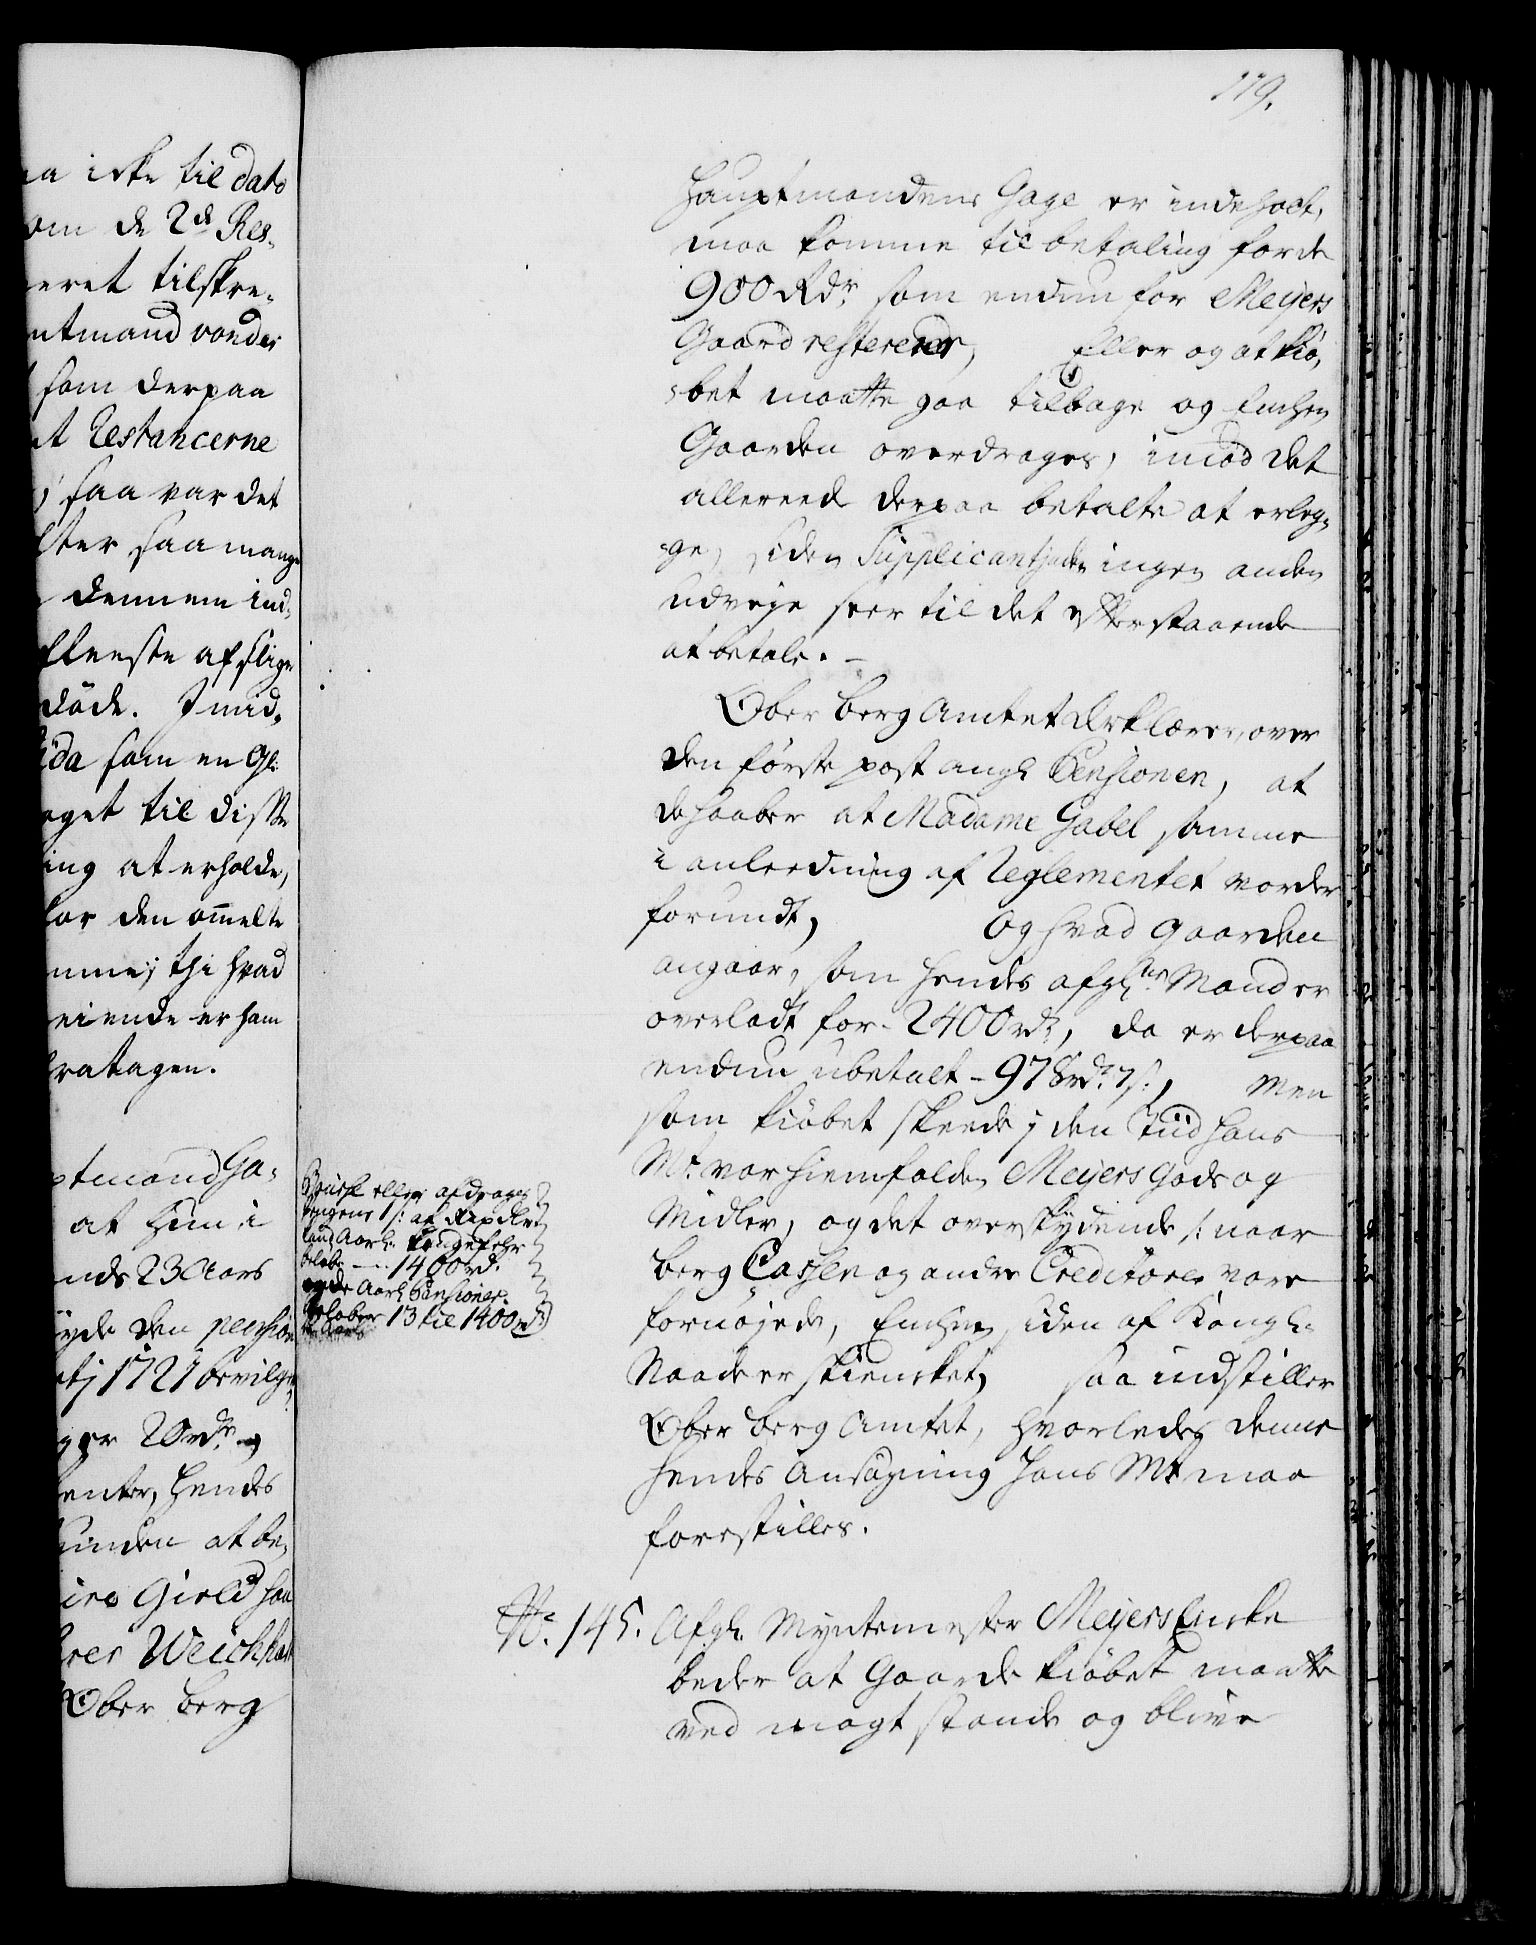 119.
a icke til dato
om de 2de Res-
eret tilskre-
ntmand vonder
som derpaa
t Restancerne
saa var det
lter saa mange
dennem ind-
fleeste af slige
döde. Jmid-
som en Gl.
oget til disse
ing at erholde,
for den om̅elte
thi hvad
eiende er ham
fratagen.
ptmand Ga-
at hun i
ends 23 Aars
nyde den pension
1721 bevilge
20 rdr.
enter, hendes
at be-
Gield
Weichhar
Ober Berg
Hauptmandens Gage er indeholt,
maa komme til betaling for de
900 Rdr. som endnu for Meyers
Gaard resterer, Eller og at kiö-
bet maatte gaa tilbage og Enchen
Gaarden overdrages, imod det
allereede derpaa betalte at erleg-
ge, siden Supplicantinden ingen anden
udveje seer til det efterstaaende
at betale.
Ober Berg Amtet Erklærer, over
den förste post angl. Pensionen, at
de haaber at Madame Gabel samme
i anleedning af Reglementet vorder
forundt, Og hvad Gaarden
angaar, som hendes afgl. Mand er
overladt for 2400 rdr., da er derpaa
endnu ubetalt - 978 rdr. 7 s., Men
som kiöbet skeede j den Tiid Hans
Mt. var hiemfalden Meyers Gods og
Midler, og det overskydende /: naar
Berg Cassen og andre Creditorer vare
fornöjede, Enchen siden af Kongl.
Naade er skiencket, saa indstiller
Ober Berg Amtet, hvorledes denne
hendes Ansögning Hans Mt. maa
forestilles.
eller afdrags
Aarl. Ungefehr
belöb - 1400 rd.
og de Aarl. Pensioner
belöber 13 til 1400 rd.
No. 145. Afgl. Myntemester Meyers Encke
beder at Gaarde kiöbet maatte
ved magt stande og blive